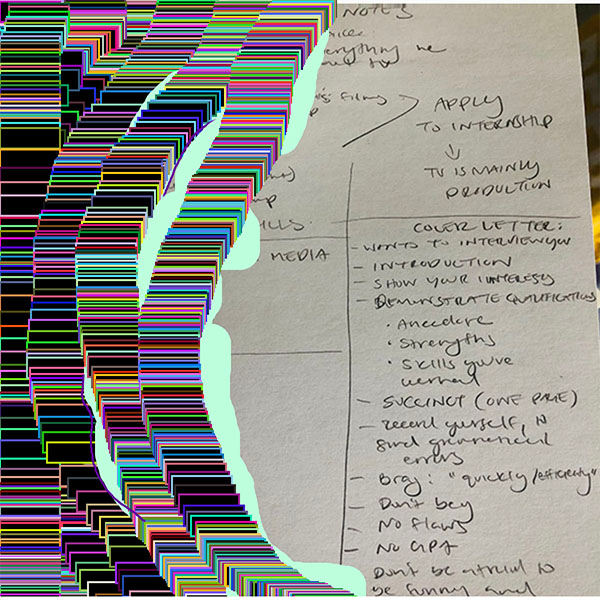 NOTES
everything we
films
APPLY
TO INTERNSHIP
↓
TV IS MAINLY
PRODUCTION
MEDIA
COVER LETTER:
- WANTS TO INTERVIEW YOU
- INTRODUCTION
- SHOW YOUR INTERESTS
- DEMONSTRATE QUALIFICATIONS
· Anecdote
· Strengths
· Skills you've
learned
- SUCCINCT (ONE PAGE)
- record yourself,
find grammatical
errors
- Brag: "quickly/efficiently"
- Don't beg
- No flaws
- NO GPA
Don't be afraid to
be funny and